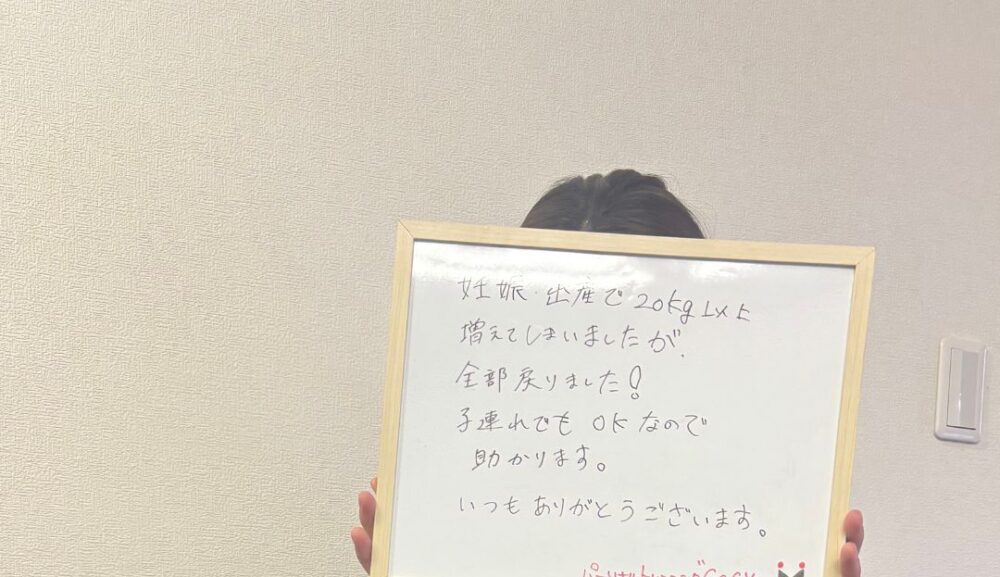 妊娠・出産で20kg以上
増えてしまいましたが、
全部戻りました!
子連れでもOKなので
助かります。
いつもありがとうございます。